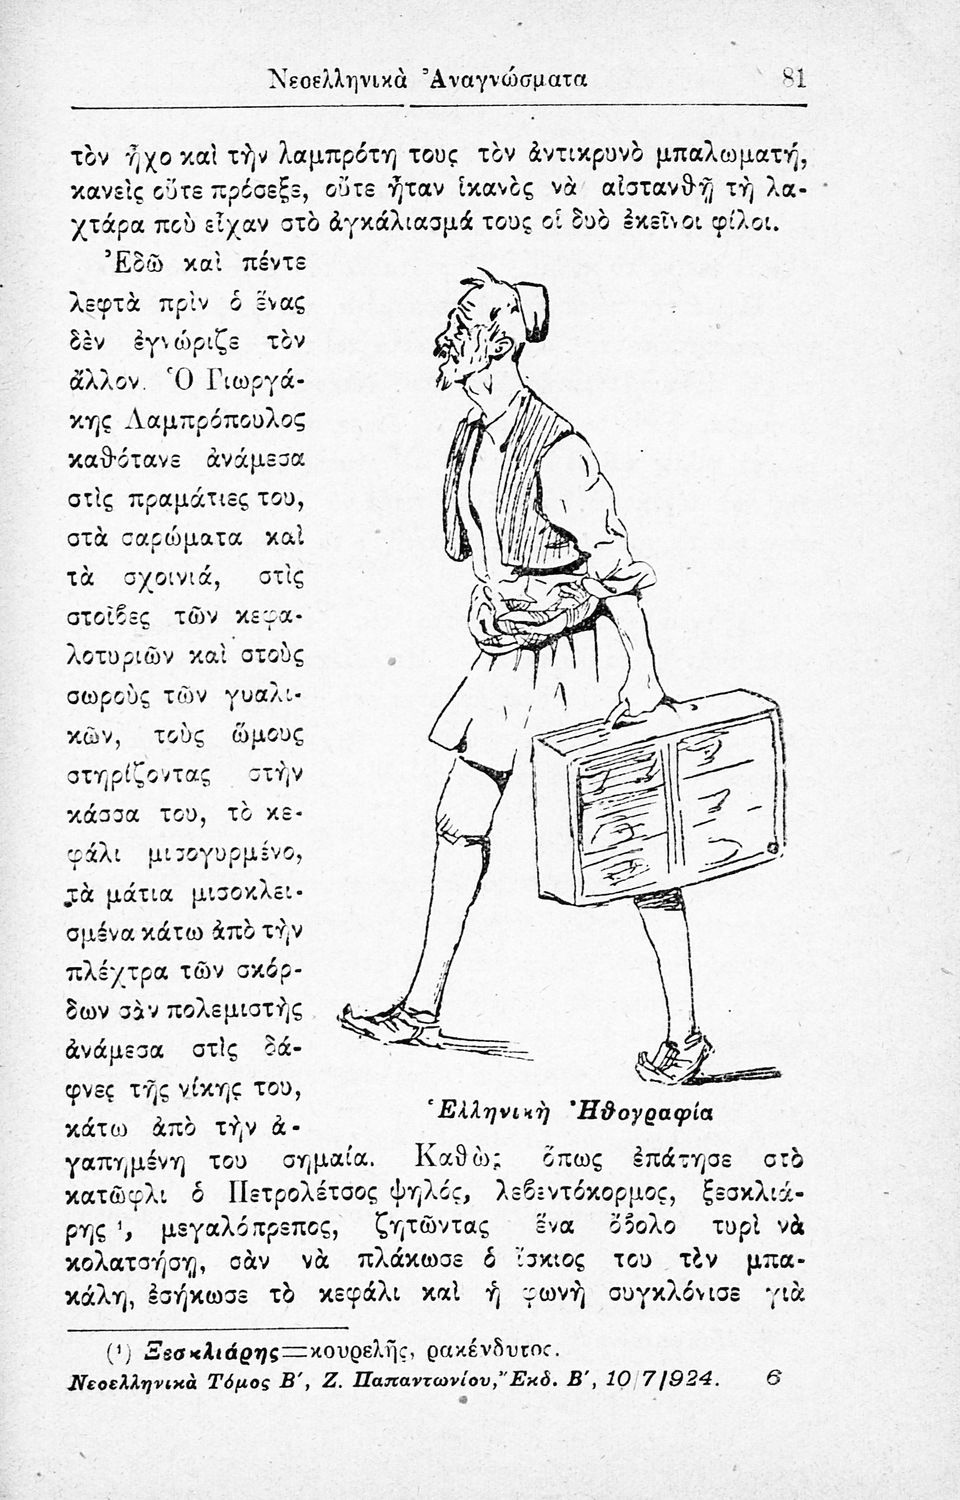 Νεοελληνικὰ Ἀναγνώσματα 81
τὸν ἦχο καὶ τὴν λαμπρότη τους τὸν ἀντικρυνὸ μπαλωματή,
κανεὶς οὔτε πρόσεξε, οὔτε ἦταν ἱκανὸς νὰ αἰστανθῇ τὴ λα-
χτάρα ποὺ εἶχαν στὸ ἀγκάλιασμά τους οἱ δυὸ ἐκεῖνοι φίλοι.
Ἐδῶ καὶ πέντε
λεφτὰ πρὶν ὁ ἕνας
δὲν ἐγνώριζε τὸν
ἄλλον. Ὁ Γιωργά-
κης Λαμπρόπουλος
καθότανε ἀνάμεσα
στὶς πραμάτιες του,
στὰ σαρώματα καὶ
τὰ σχοινιά, στὶς
στοῖβες τῶν κεφα-
λοτυριῶν καὶ στοὺς
σωροὺς τῶν γυαλι-
κῶν, τοὺς ὤμους
στηρίζοντας στὴν
κάσσα του, τὸ κε-
φάλι μισογυρμένο,
τὰ μάτια μισοκλει-
σμένα κάτω ἀπὸ τὴν
πλέχτρα τῶν σκόρ-
δων σὰν πολεμιστὴς
ἀνάμεσα στὶς δά-
φνες τῆς νίκης του,
κάτω ἀπὸ τὴν ἀ-
Ἑλληνικὴ Ἠθογραφία
γαπημένη του σημαία. Καθὼς ὅπως ἐπάτησε στὸ
κατῶφλι ὁ Πετρολέτσος ψηλός, λεβεντόκορμος, ξεσκλιά-
ρης ¹, μεγαλόπρεπος, ζητῶντας ἕνα ὄβολο τυρὶ νὰ
κολατσήσῃ, σὰν νὰ πλάκωσε ὁ ἴσκιος του τὸν μπα-
κάλη, ἐσήκωσε τὸ κεφάλι καὶ ἡ φωνὴ συγκλόνισε γιὰ
(¹) Ξεσκλιάρης=κουρελῆς, ρακένδυτος.
Νεοελληνικὰ Τόμος Β′, Ζ. Παπαντωνίου, Ἔκδ. Β′, 10/7/924. 6